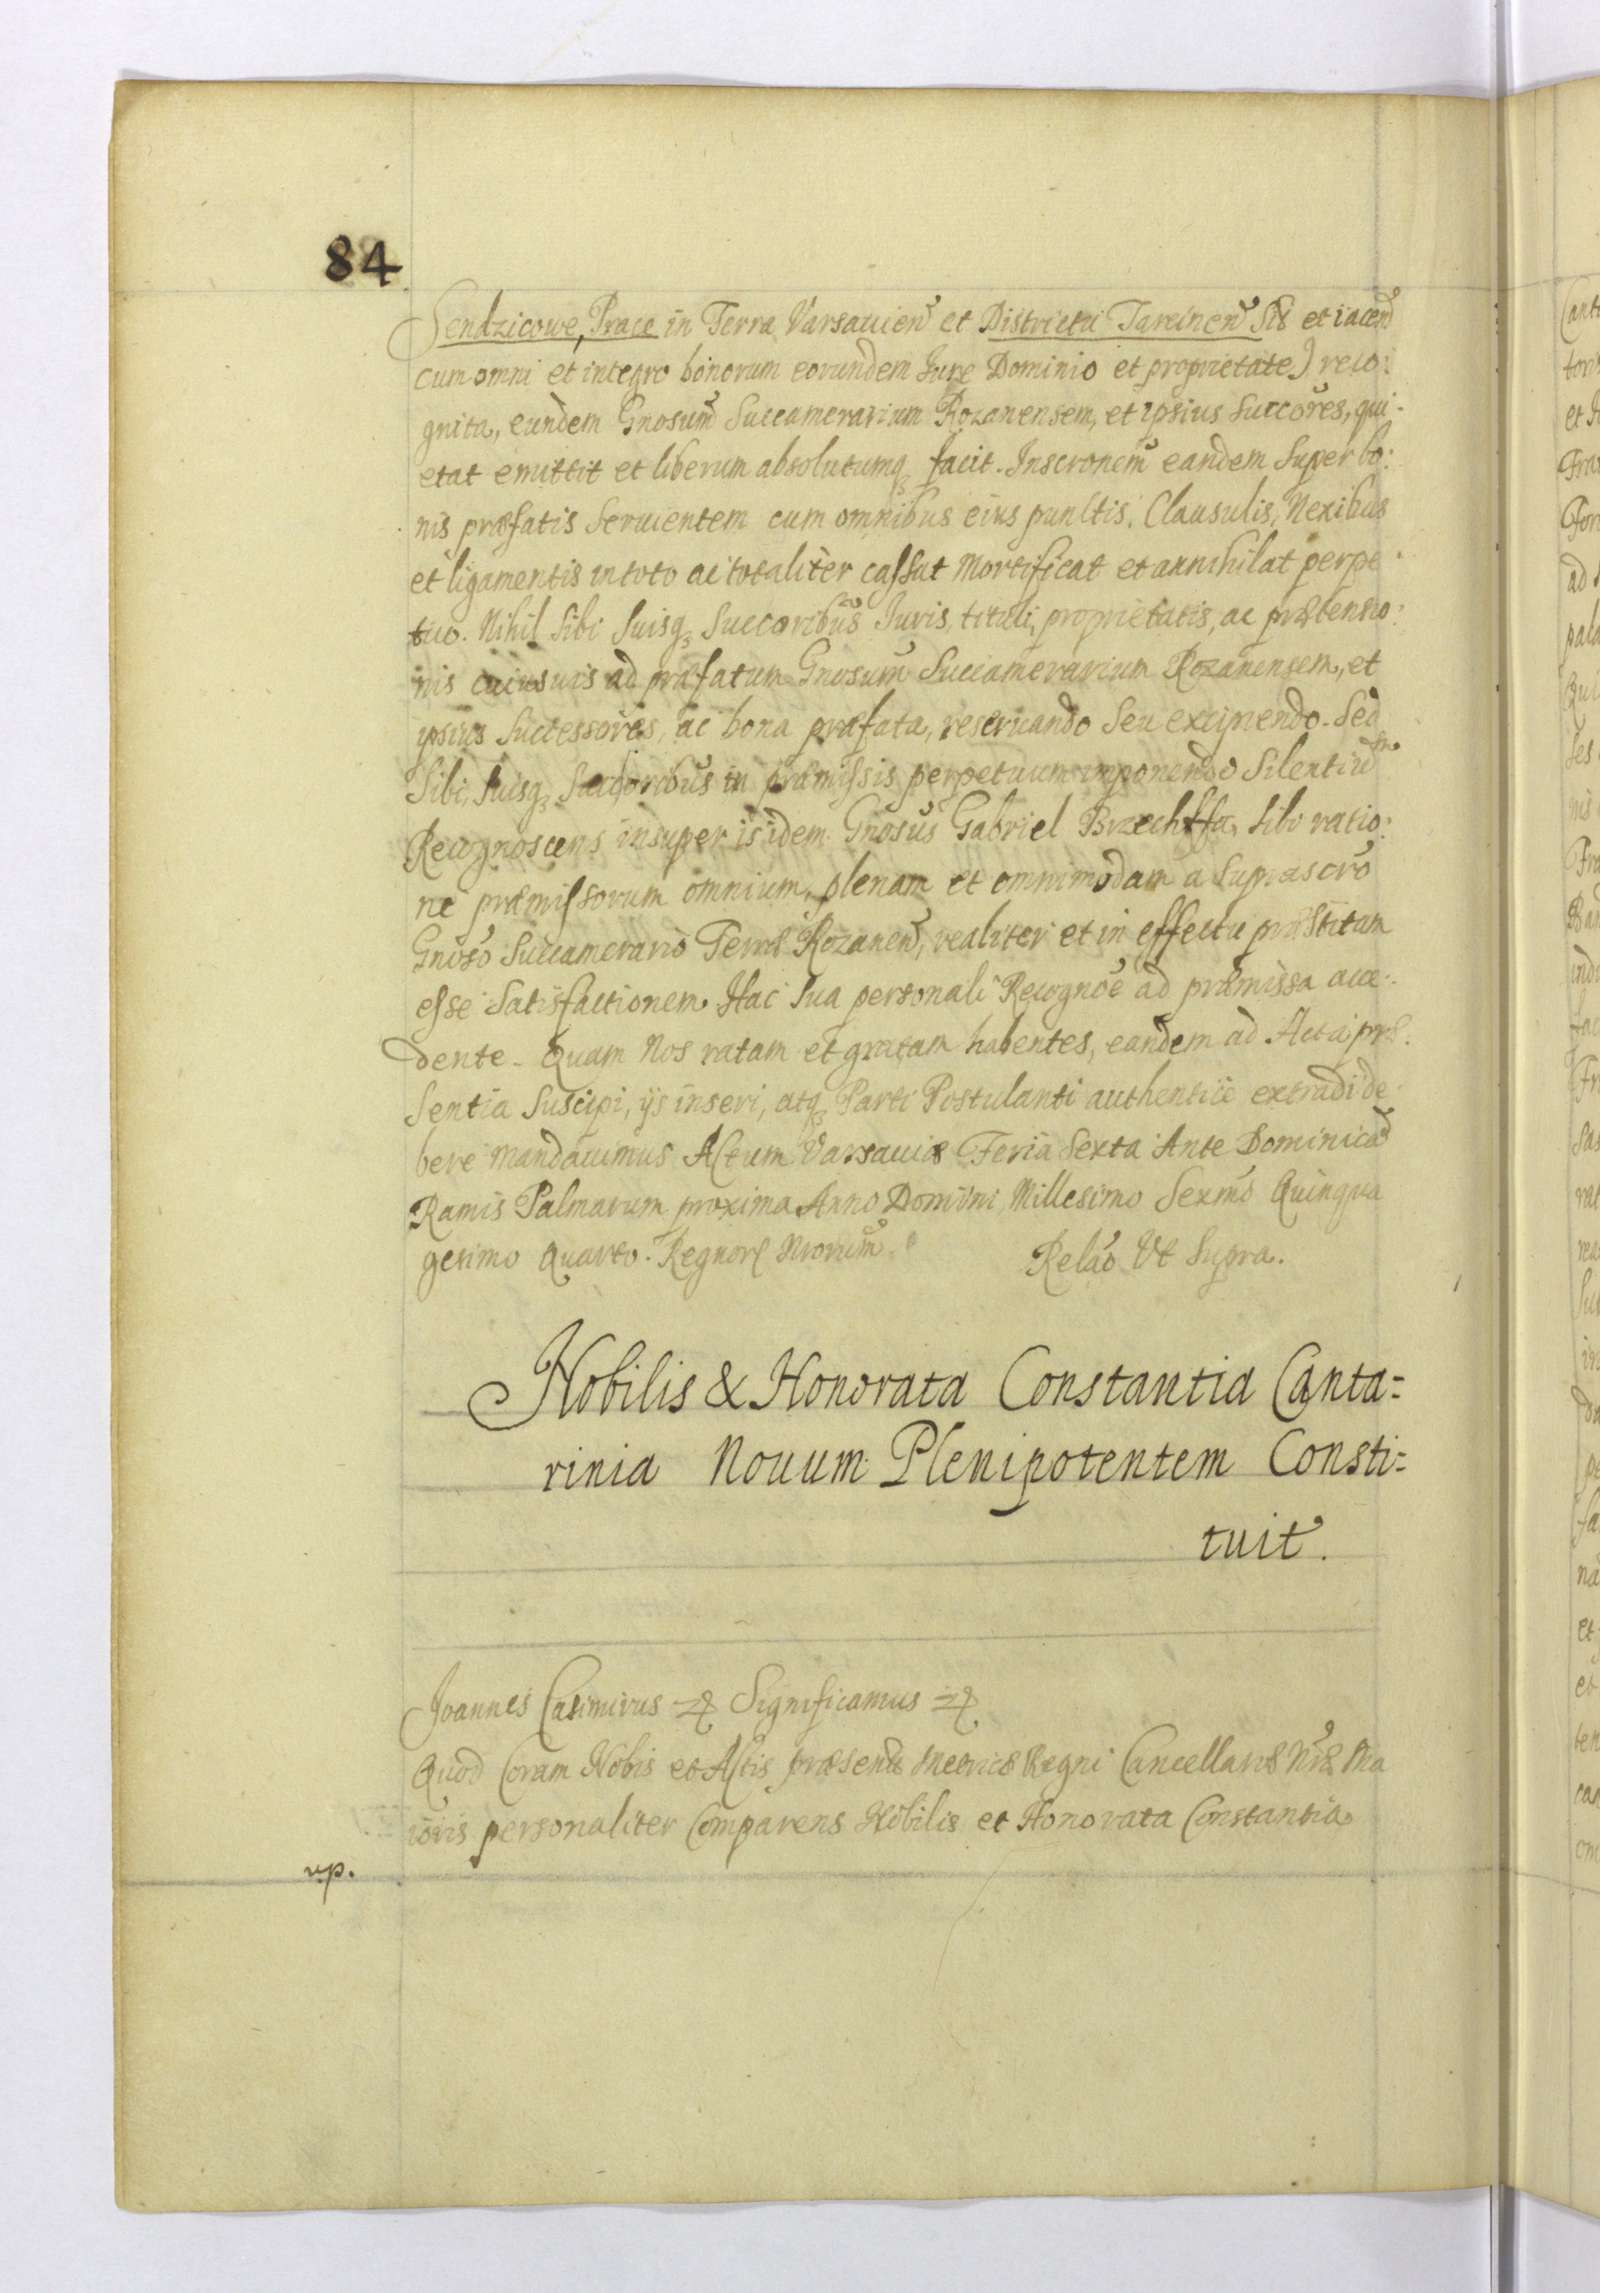 84
Sendzicowe, Prace in Terra Varsauien et Districtu Tarcinen Sts et iacen
cum omni et integro bonorum eorundem Jure Dominio et proprietate) reco:
gnita, eundem Gnosum Succamerarium Rozanensem, et ipsius Succores, qui-
etat emittit et liberum absolutumq facit. Inscronem eandem Super bo:
nis præfatis Seruientem cum omnibus eius punctis, Clausulis, Nexibus
et ligamentis in toto ac totaliter cassat Mortificat et annihilat perpe
tuo. Nihil Sibi Suisq Succoribus Juris, tituli, proprietatis, ac prætensio:
nis cuiusuis ad præfatum Gnosum Succamerarium Rozanensem, et
ipsius Successores, ac bona præfata, reseruando Seu excipiendo. Sed
Sibi, Suisq Succoribus in præmissis perpetuum imponendo Silentium
Recognoscens insuper is idem Gnosus Gabriel Brzechffa, Sibi ratio:
ne præmissorum omnium, plenam et omnimodam a Suprascro
Gnoso Succamerario Terræ Rozanen, realiter et in effectu præstitam
esse Satisfactionem. Hac Sua personali Recognoe ad præmissa acce:
dente. Quam Nos ratam et gratam habentes, eandem ad Acta præ:
sentia Suscipi, ijs inseri, atq Parti Postulanti authentice extradi de
bere mandauimus Actum Varsauiæ Feria Sexta Ante Dominicam
Ramis Palmarum proxima Anno Domini Millesimo Sexmo Quinqua
gesimo Quarto. Regnor Nrorum
Relao Vt Supra.
Nobilis & Honorata Constantia Canta=
rinia Nouum Plenipotentem Consti=
tuit.
Joannes Casimirus Significamus
Quod Coram Nobis et Actis præsentis Metricæ Regni Cancellariæ Nræ Ma
ioris personaliter Comparens Nobilis et Honorata Constantia